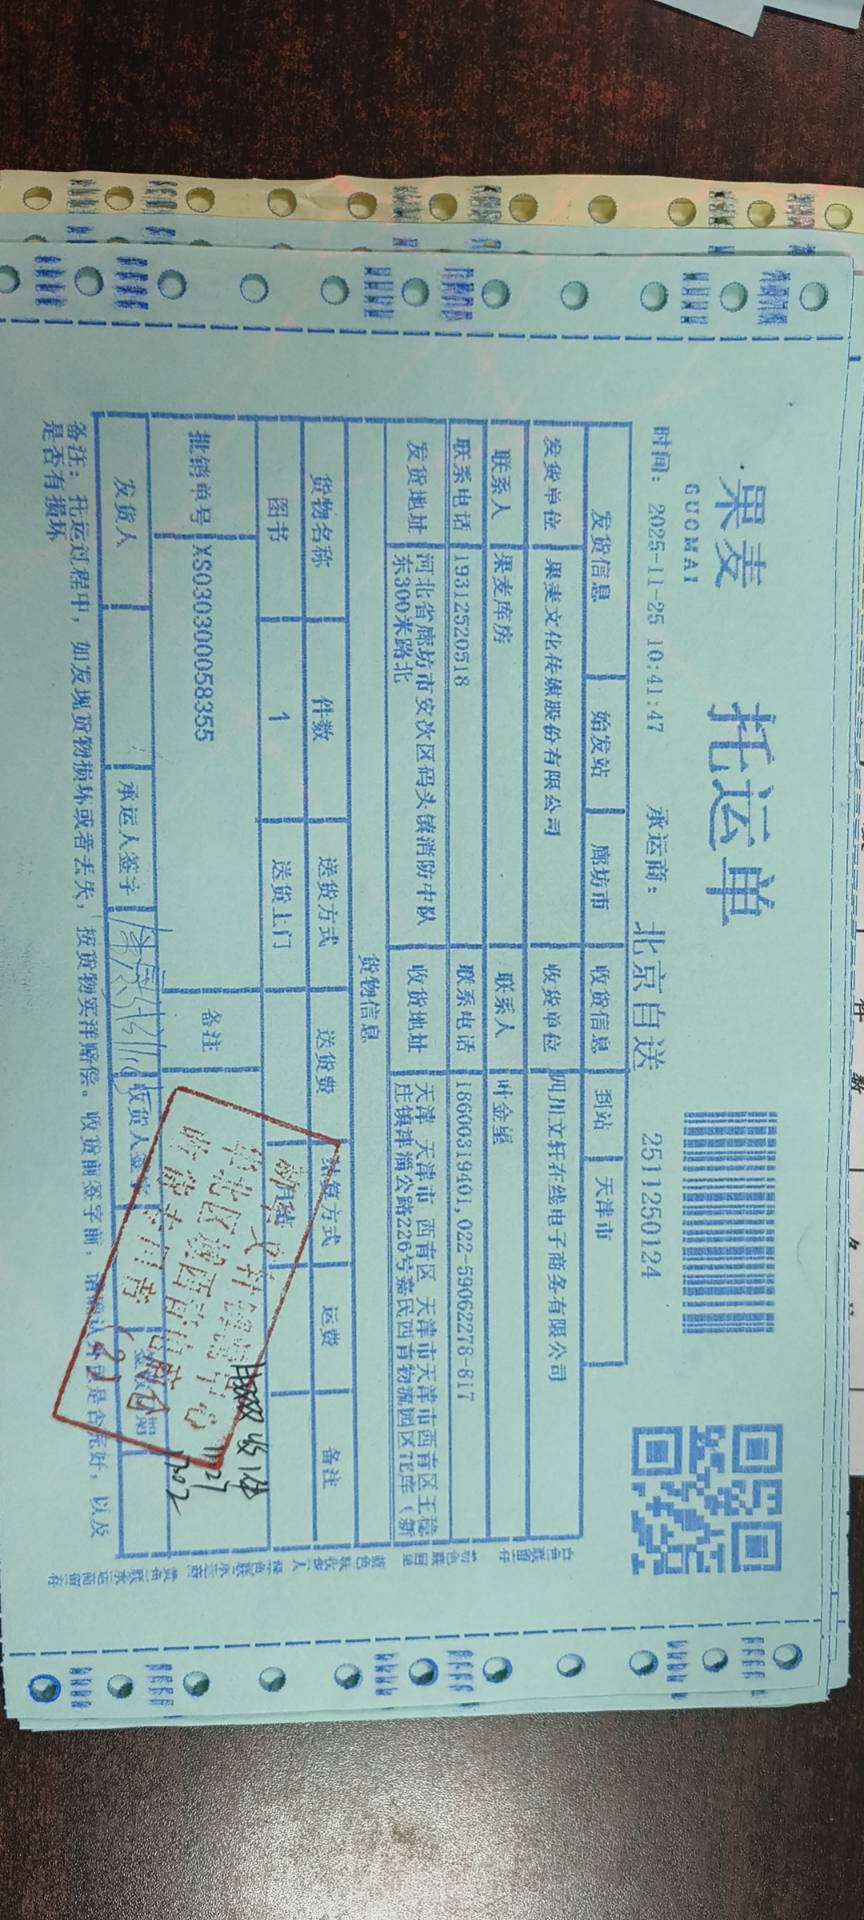 果麦 托运单
GUOMAI
时间: 2025-11-25 10:41:47 承运商: 北京自送 2511250124
发货信息 始发站 廊坊市 收货信息 到站 天津市
发货单位 果麦文化传媒股份有限公司 收货单位 四川文轩在线电子商务有限公司
联系人 果麦库房 联系人 叶金星
联系电话 19312520518 联系电话 18600319401,022-59062278-817
发货地址 河北省廊坊市安次区码头镇消防中队 收货地址 天津 天津市 西青区 天津市天津市西青区王稳
东300米路北 庄镇津淄公路226号嘉民西青物流园区7E库(新
货物信息
货物名称 件数 送货方式 送货费 结算方式 运费 备注
图书 1 送货上门 月结
批销单号 XS030300058355 备注
发货人 承运人签字 收货人签字
备注: 托运过程中, 如发现货物损坏或者丢失, 按货物实洋赔偿。收货前签字前, 请确认外包是否完好, 以及
是否有损坏